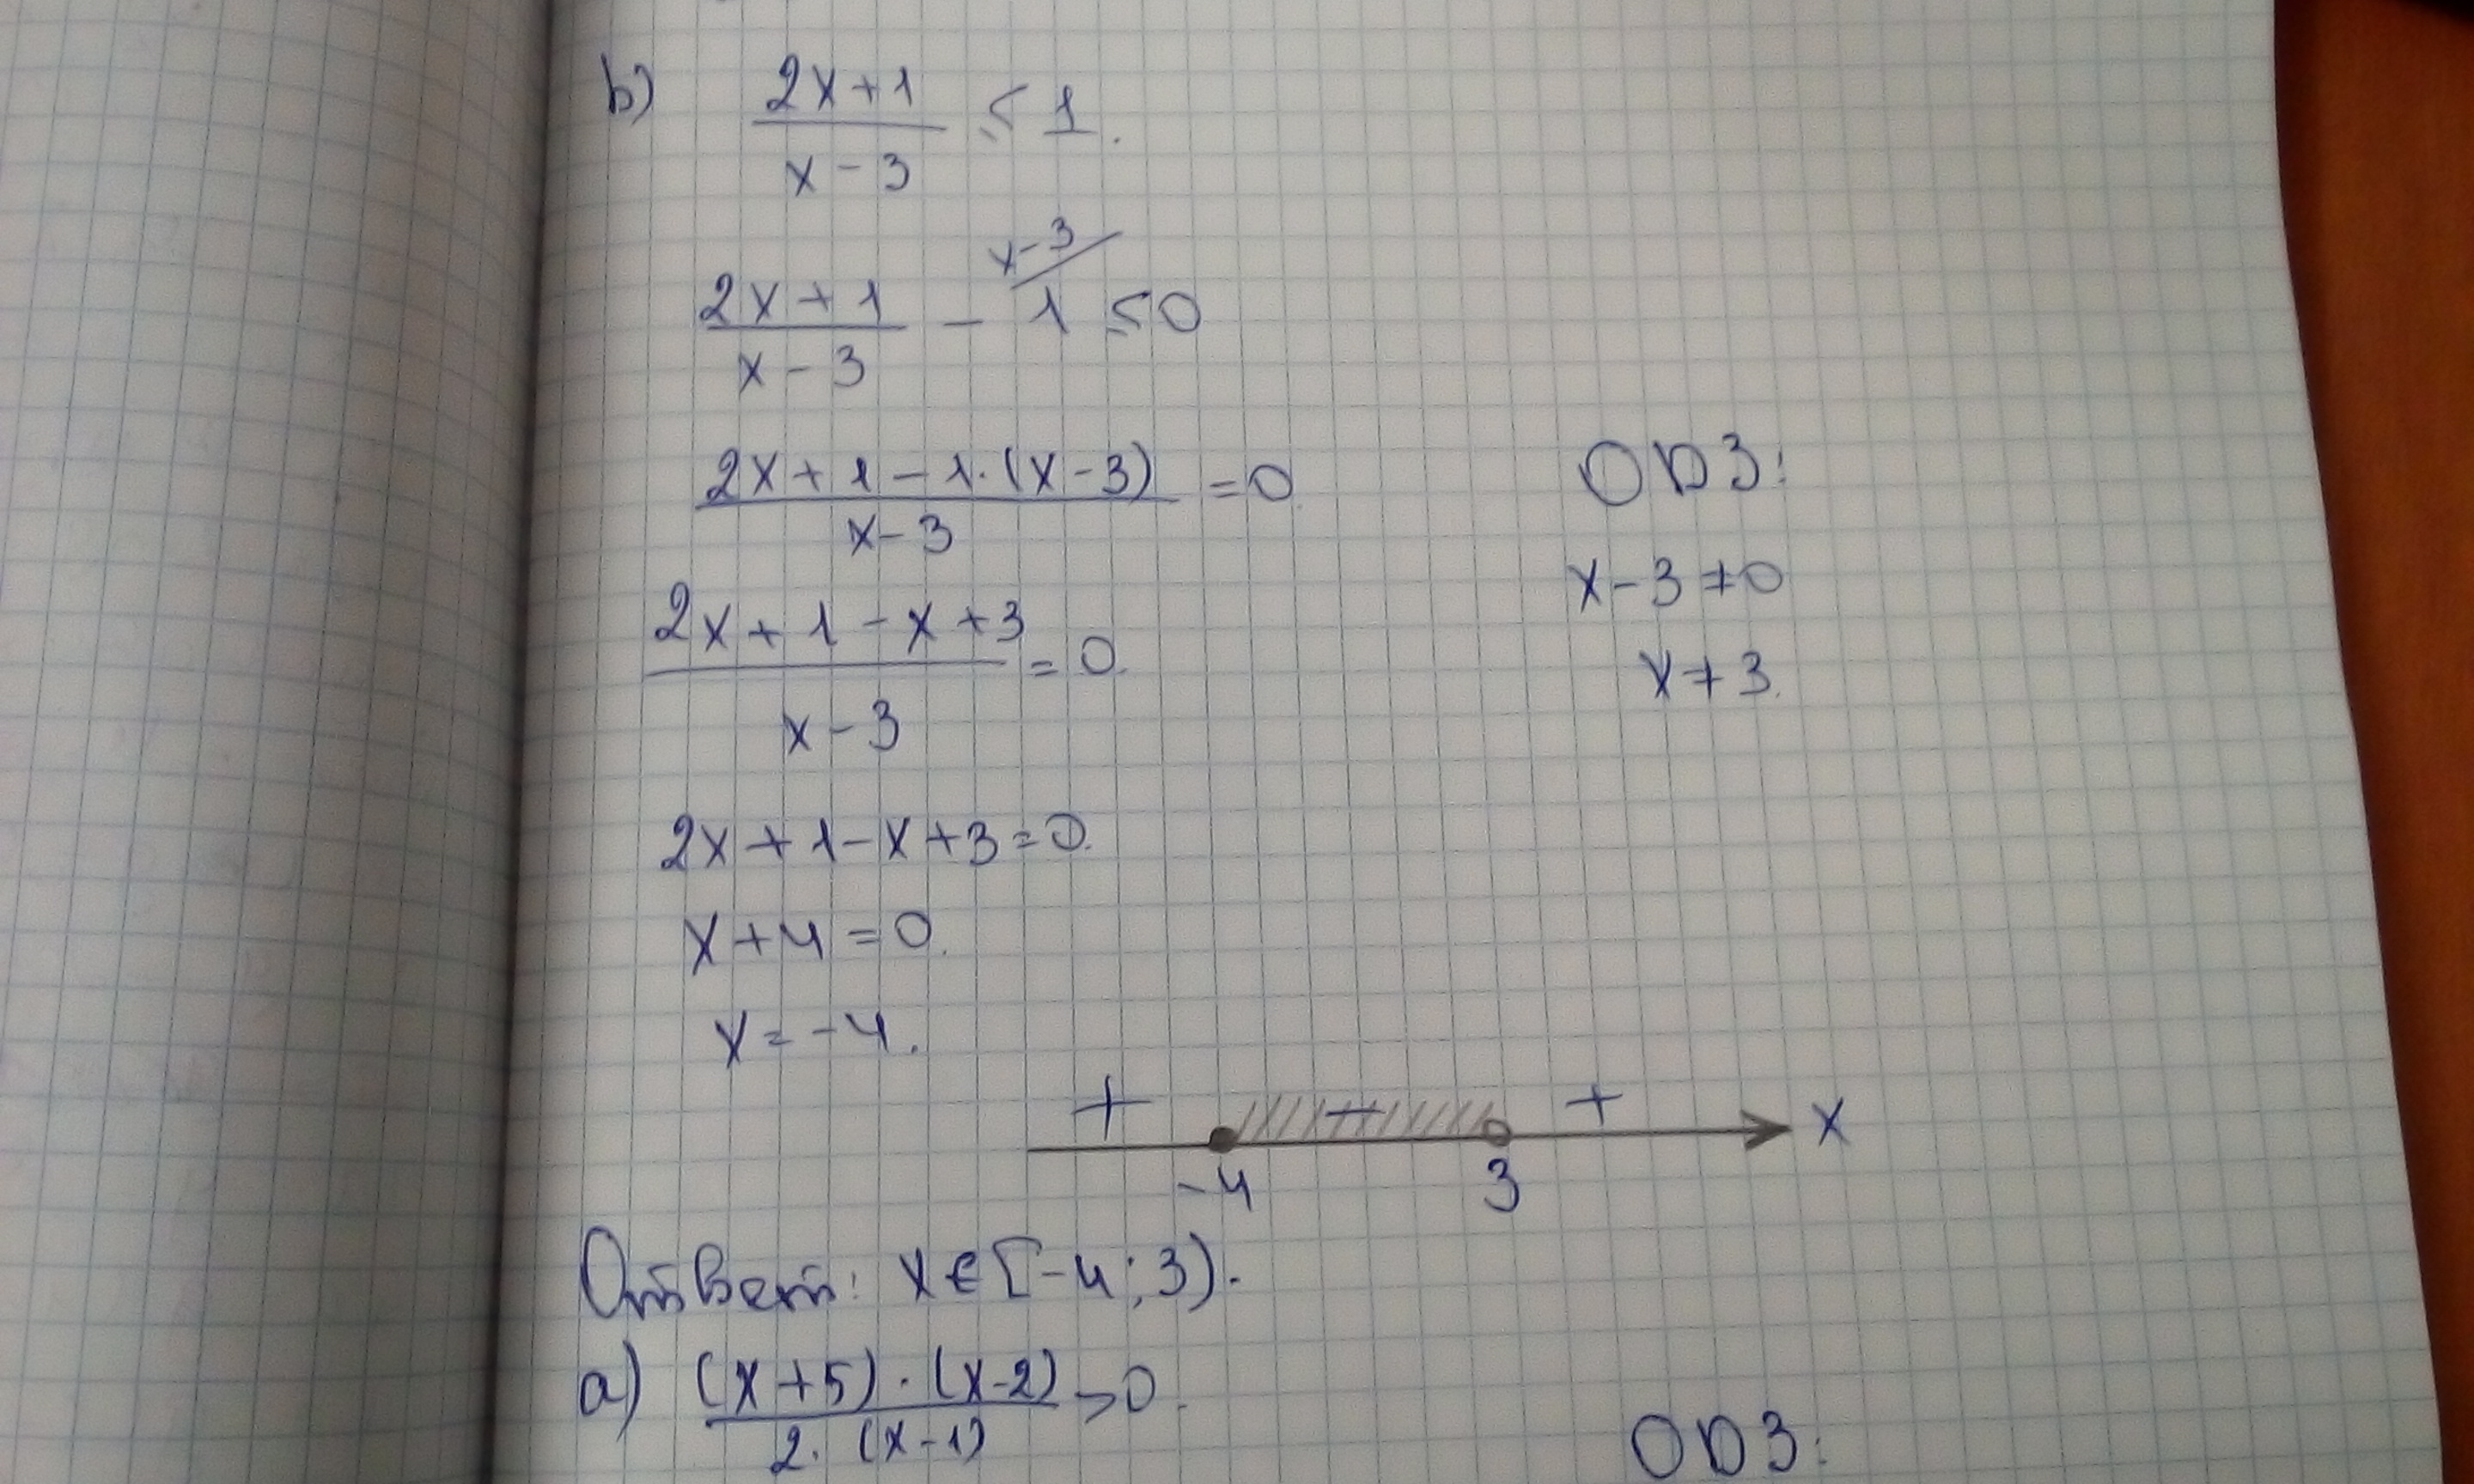 b) (2x+1)/(x-3) ≤ 1.
(2x+1)/(x-3) - 1 ≤ 0
x-3
(2x+1-1·(x-3))/(x-3) = 0
ОДЗ:
(2x+1-x+3)/(x-3) = 0.
x-3≠0
x≠3.
2x+1-x+3=0.
x+4=0.
x=-4.
+ - + x
-4 3
Ответ: x∈[-4;3).
a) ((x+5)·(x-2))/(2·(x-1)) >0.
ОДЗ: